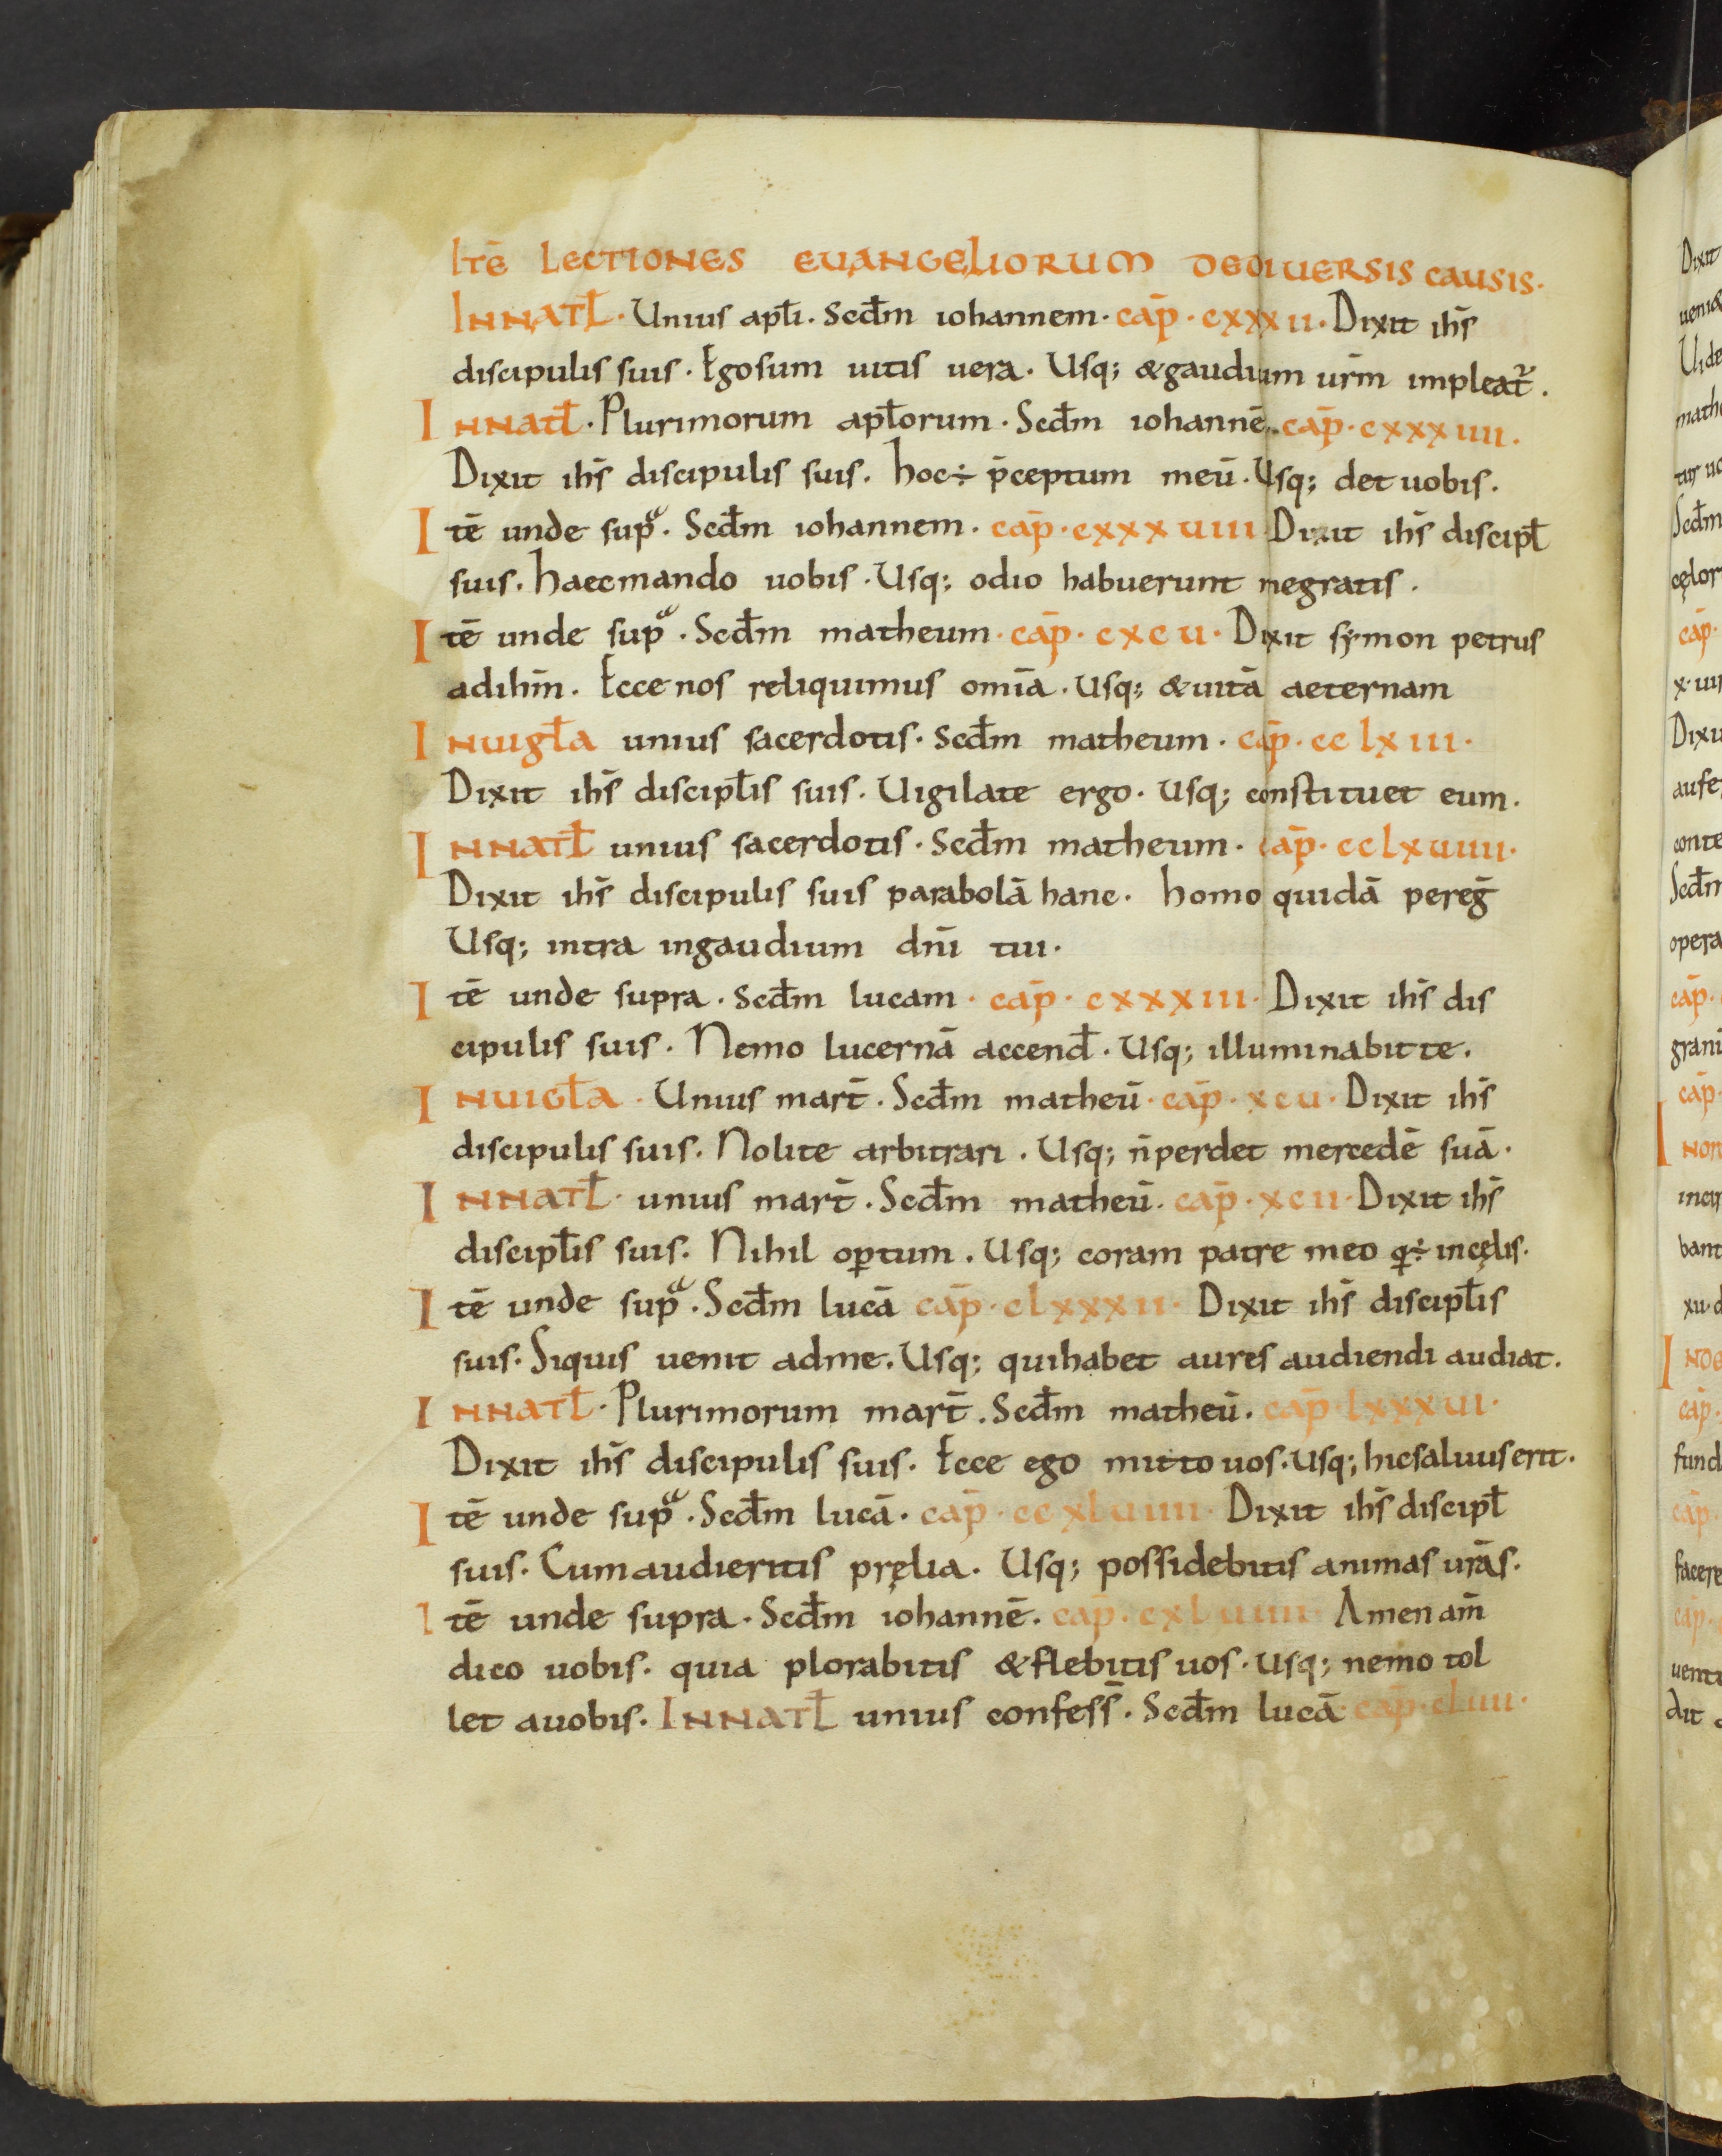 ITē LECTIONES EUANGELIORUM DEDIUERSIS CAUSIS·
INNATł· Unius apłi. Scđm iohannem· cap̄· cxxxii· Dixit ihs̄
discipulis suis· Egosum uitis uera· Usq; &gaudium ur̄m impleat᷑.
INNATł· Plurimorum apłorum· Scđm iohannē· cap̄· cxxxiiii·
Dixit ihs̄ discipulis suis. hoc÷ p̄ceptum meū· Usq; det uobis.
Itē unde supͣ. Scđm iohannem· cap̄· cxxxuiii Dixit ihs̄ discipł
suis. haecmando uobis· Usq; odio habuerunt megratis.
Itē unde supͣ. Scđm matheum· cap̄· cxcu· Dixit symon petrus
adihm̄. Ecce nos reliquimus omīa· Usq; &uitā aeternam
INuigła unius sacerdotis· Scđm matheum· cap̄· cclxiii·
Dixit ihs̄ discipłis suis· Uigilate ergo· Usq; constituet eum.
INNATł unius sacerdotis· Scđm matheum· cap̄· cclxuiiii·
Dixit ihs̄ discipulis suis parabolā hanc· homo quidā pereḡ
Usq; intra ingaudium dn̄i tui·
Itē unde supra· Scđm lucam· cap̄· cxxxiii· Dixit ihs̄ dis
cipulis suis· Nemo lucernā accenđ· Usq; illuminabit te.
INUIGła· Unius mart̄. Scđm matheū· cap̄· xcu· Dixit ihs̄
discipulis suis. Nolite arbitrari. Usq; n̄perdet mercedē suā·
INNATł· unius mart̄. Scđm matheū· cap̄· xcii· Dixit ihs̄
discipłis suis· Nihil oꝑtum. Usq; coram patre meo q·÷ incęlis·
Itē unde supͣ. Scđm lucā cap̄· clxxxii· Dixit ihs̄ discipłis
suis· Siquis uenit adme. Usq; quihabet aures audiendi audiat.
INNATł· Plurimorum mart̄. Scđm matheū· cap̄ lxxxui·
Dixit ihs̄ discipulis suis· Ecce ego mitto uos· Usq; hicsaluuserit·
Itē unde supͣ. Scđm lucā· cap̄· ccxluiiii· Dixit ihs̄ discipł
suis· Cumaudieritis pręlia· Usq; possidebitis animas ur̄as·
Itē unde supra· Scđm iohannē. cap̄· cxluiiii Amen am̄
dico uobis· quia plorabitis &flebitis uos· usq; nemo tol
let auobis· INNATł unius confess̄. Scđm lucā· cap̄·